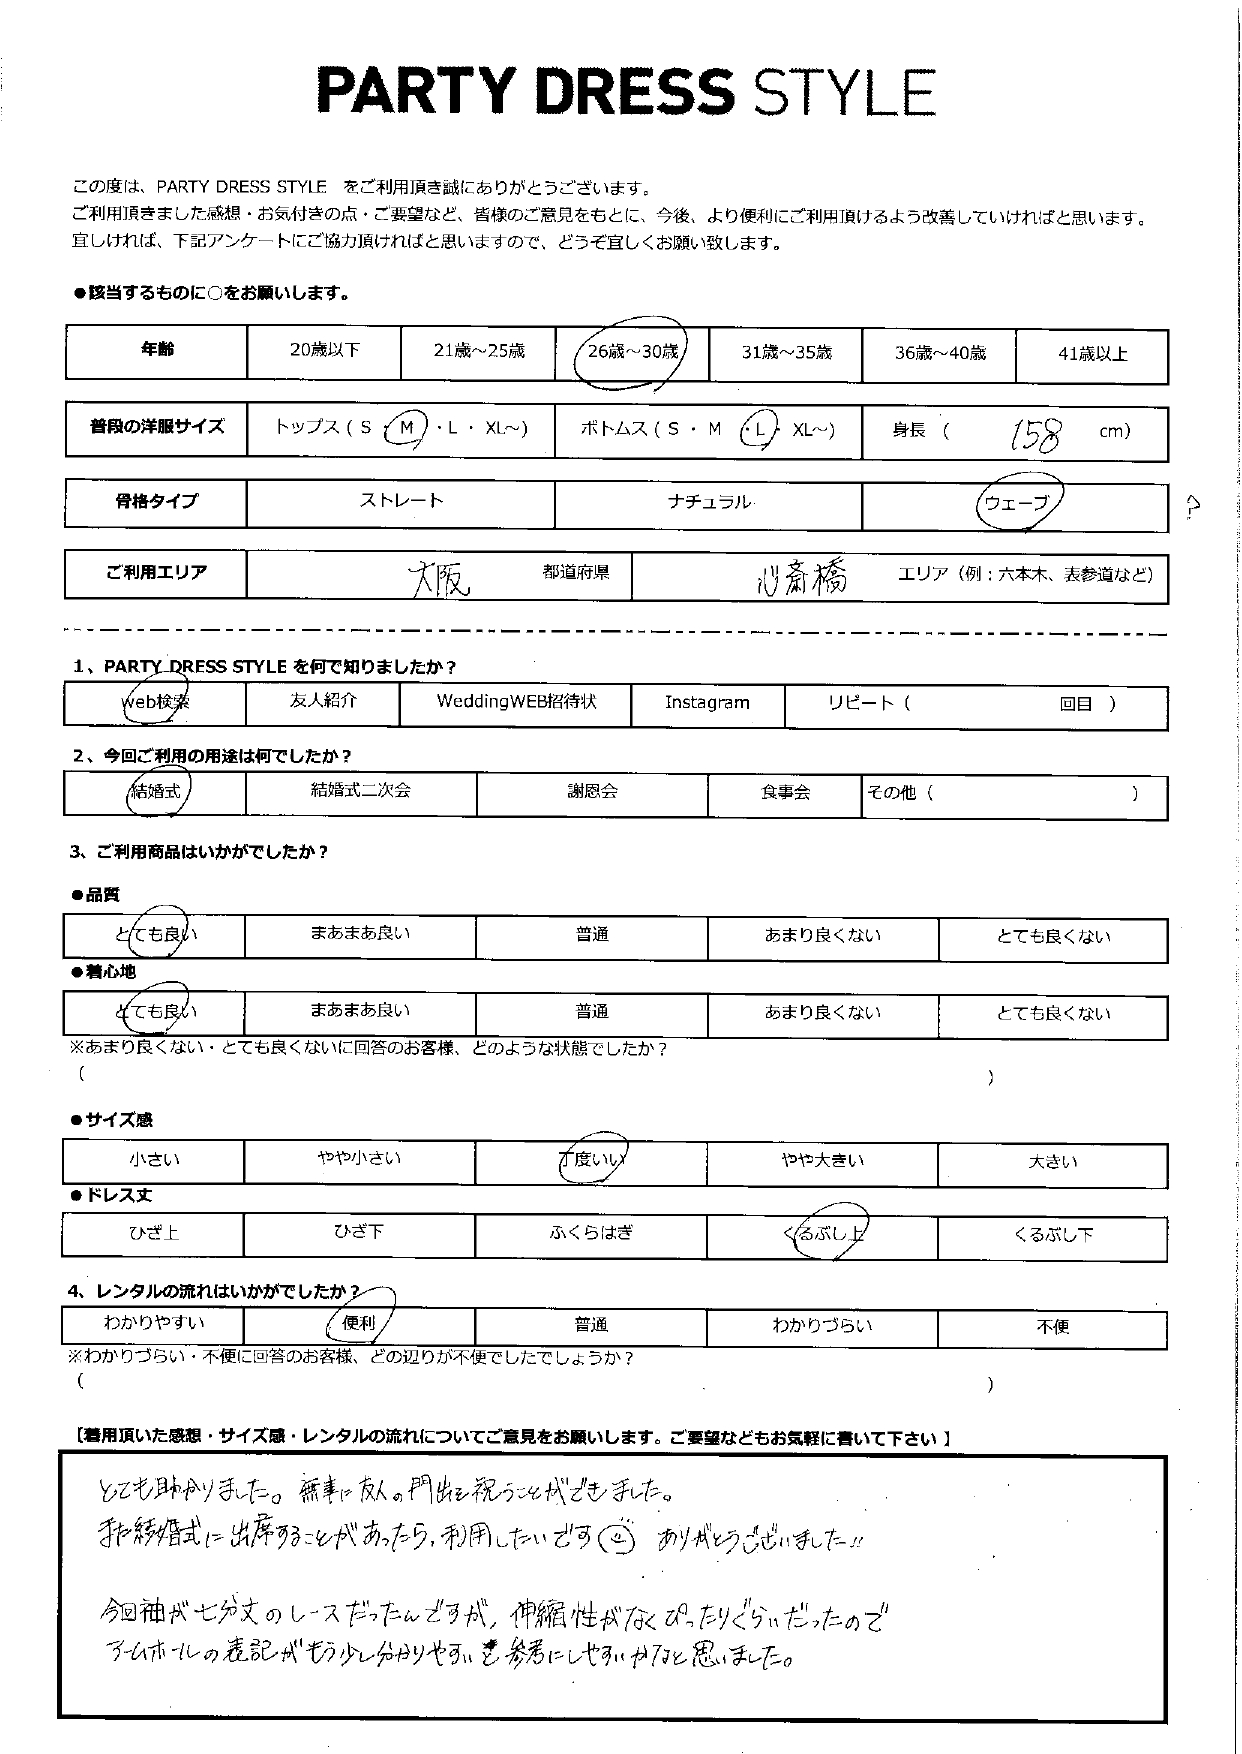 PARTY DRESS STYLE
この度は、PARTY DRESS STYLE をご利用頂き誠にありがとうございます。
ご利用頂きました感想・お気付きの点・ご要望など、皆様のご意見をもとに、今後、より便利にご利用頂けるよう改善していければと思います。
宜しければ、下記アンケートにご協力頂ければと思いますので、どうぞ宜しくお願い致します。
●該当するものに○をお願いします。
年齢 20歳以下 21歳～25歳 26歳～30歳 31歳～35歳 36歳～40歳 41歳以上
普段の洋服サイズ トップス ( S ・ M ・ L ・ XL～) ボトムス ( S ・ M ・ L ・ XL～) 身長 ( 158 cm)
骨格タイプ ストレート ナチュラル ウェーブ ?
ご利用エリア 大阪 都道府県 心斎橋 エリア（例：六本木、表参道など）
1、PARTY DRESS STYLE を何で知りましたか？
web検索 友人紹介 WeddingWEB招待状 Instagram リピート ( 回目 )
2、今回ご利用の用途は何でしたか？
結婚式 結婚式二次会 謝恩会 食事会 その他 ( )
3、ご利用商品はいかがでしたか？
●品質
とても良い まあまあ良い 普通 あまり良くない とても良くない
●着心地
とても良い まあまあ良い 普通 あまり良くない とても良くない
※あまり良くない・とても良くないに回答のお客様、どのような状態でしたか？
( )
●サイズ感
小さい やや小さい 丁度いい やや大きい 大きい
●ドレス丈
ひざ上 ひざ下 ふくらはぎ くるぶし上 くるぶし下
4、レンタルの流れはいかがでしたか？
わかりやすい 便利 普通 わかりづらい 不便
※わかりづらい・不便に回答のお客様、どの辺りが不便でしたでしょうか？
( )
【着用頂いた感想・サイズ感・レンタルの流れについてご意見をお願いします。ご要望などもお気軽に書いて下さい 】
とても助かりました。無事に友人の門出を祝うことができました。
また結婚式に出席することがあったら、利用したいです ありがとうございました!!
今回袖が七分丈のレースだったんですが、伸縮性がなくぴったりぐらいだったので
アームホールの表記がもう少し分かりやすいと参考にしやすいかなと思いました。